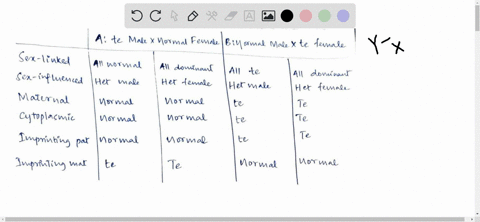 A: te Male x Normal Female B: Normal Male x te female Y-X
Sex-linked All normal All dominant All te All dominant
Sex-influenced Het male Het female Het male Het female
Maternal Normal Normal te Te
Cytoplacmic Normal Normal te Te
Imprinting pat Normal Normal te Te
Imprinting mat te Te Normal Normal